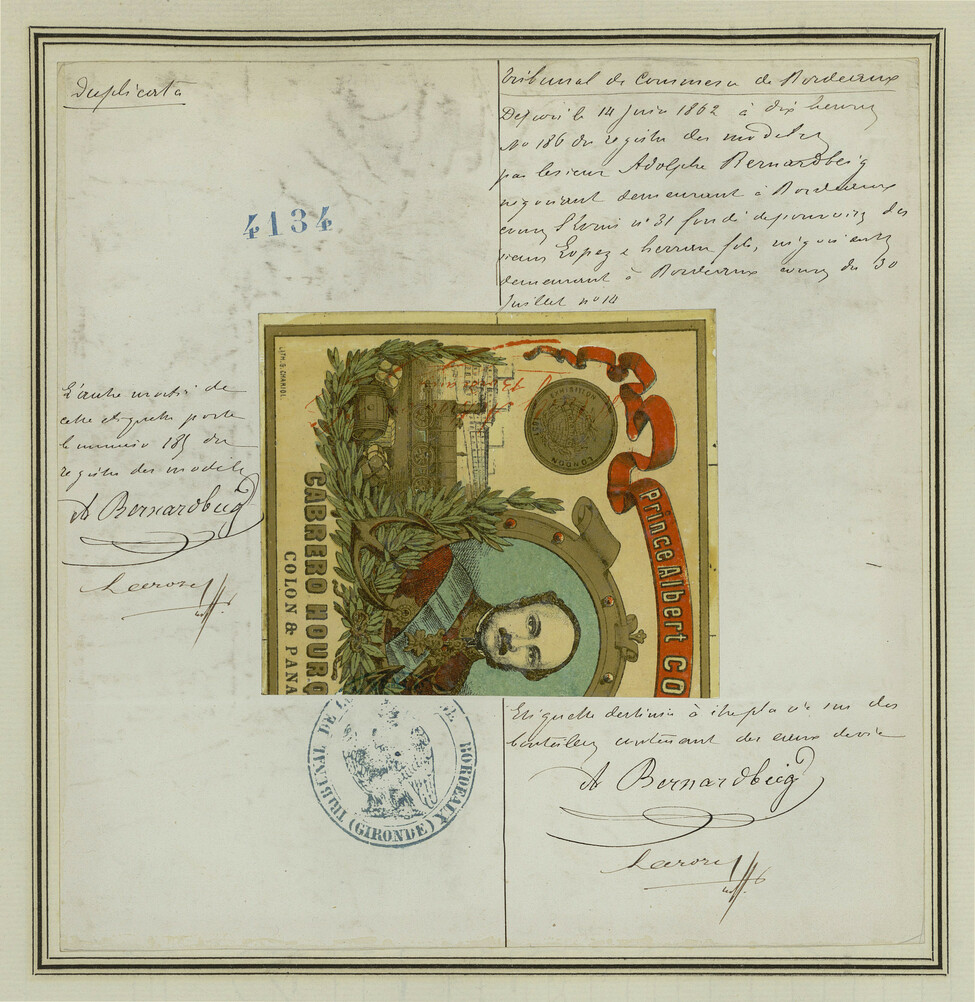 Duplicata
4134
Tribunal de Commerce de Bordeaux
Déposé le 14 Juin 1862 à dix heures
No 186 du registre des modèles
par le sieur Adolphe Bernardbeig
négociant demeurant à Bordeaux
cours St Louis n° 31 fondé de pouvoirs des
sieurs Lopez e herrera fils, négociants
demeurant à Bordeaux cours du 30
Juillet n° 14
L'autre moitié de
cette étiquette porte
le numéro 185 du
registre des modèles
A Bernardbeig
LITH. S. CHARIOL.
EXHIBITION
LONDON
Prince Albert CO
CABRERO HOURQ
COLON & PANA
TRIBUNAL DE BORDEAUX
(GIRONDE)
Etiquette destinée à être placée sur des
bouteilles contenant des eaux de vie
A Bernardbeig